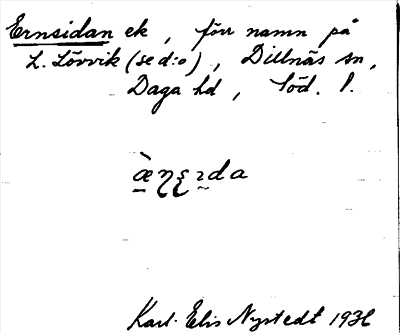 Ernsidan ek, förr namn på
L. Lövvik (se d:o), Dillnäs sn,
Daga hd, Söd. l.
Karl-Elis Nystedt 1936